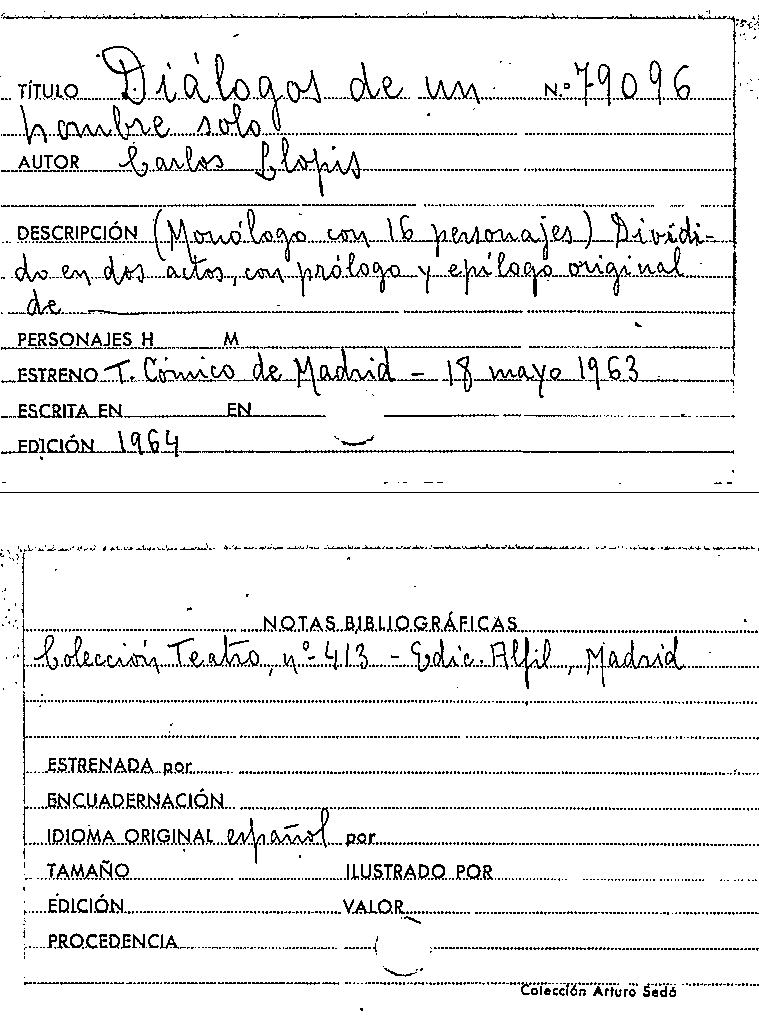 TÍTULO Diálogos de un N.º 79096
hombre solo
AUTOR Carlos Llopis
DESCRIPCIÓN (Monólogo con 16 personajes) Dividi-
do en dos actos, con prólogo y epílogo original
de —
PERSONAJES H M
ESTRENO T. Cómico de Madrid - 18 mayo 1963
ESCRITA EN EN
EDICIÓN 1964
NOTAS BIBLIOGRÁFICAS
Colección Teatro, nº 413 - Edic. Alfil, Madrid
ESTRENADA por
ENCUADERNACIÓN
IDIOMA ORIGINAL español por
TAMAÑO ILUSTRADO POR
EDICIÓN VALOR
PROCEDENCIA
Colección Arturo Sedó